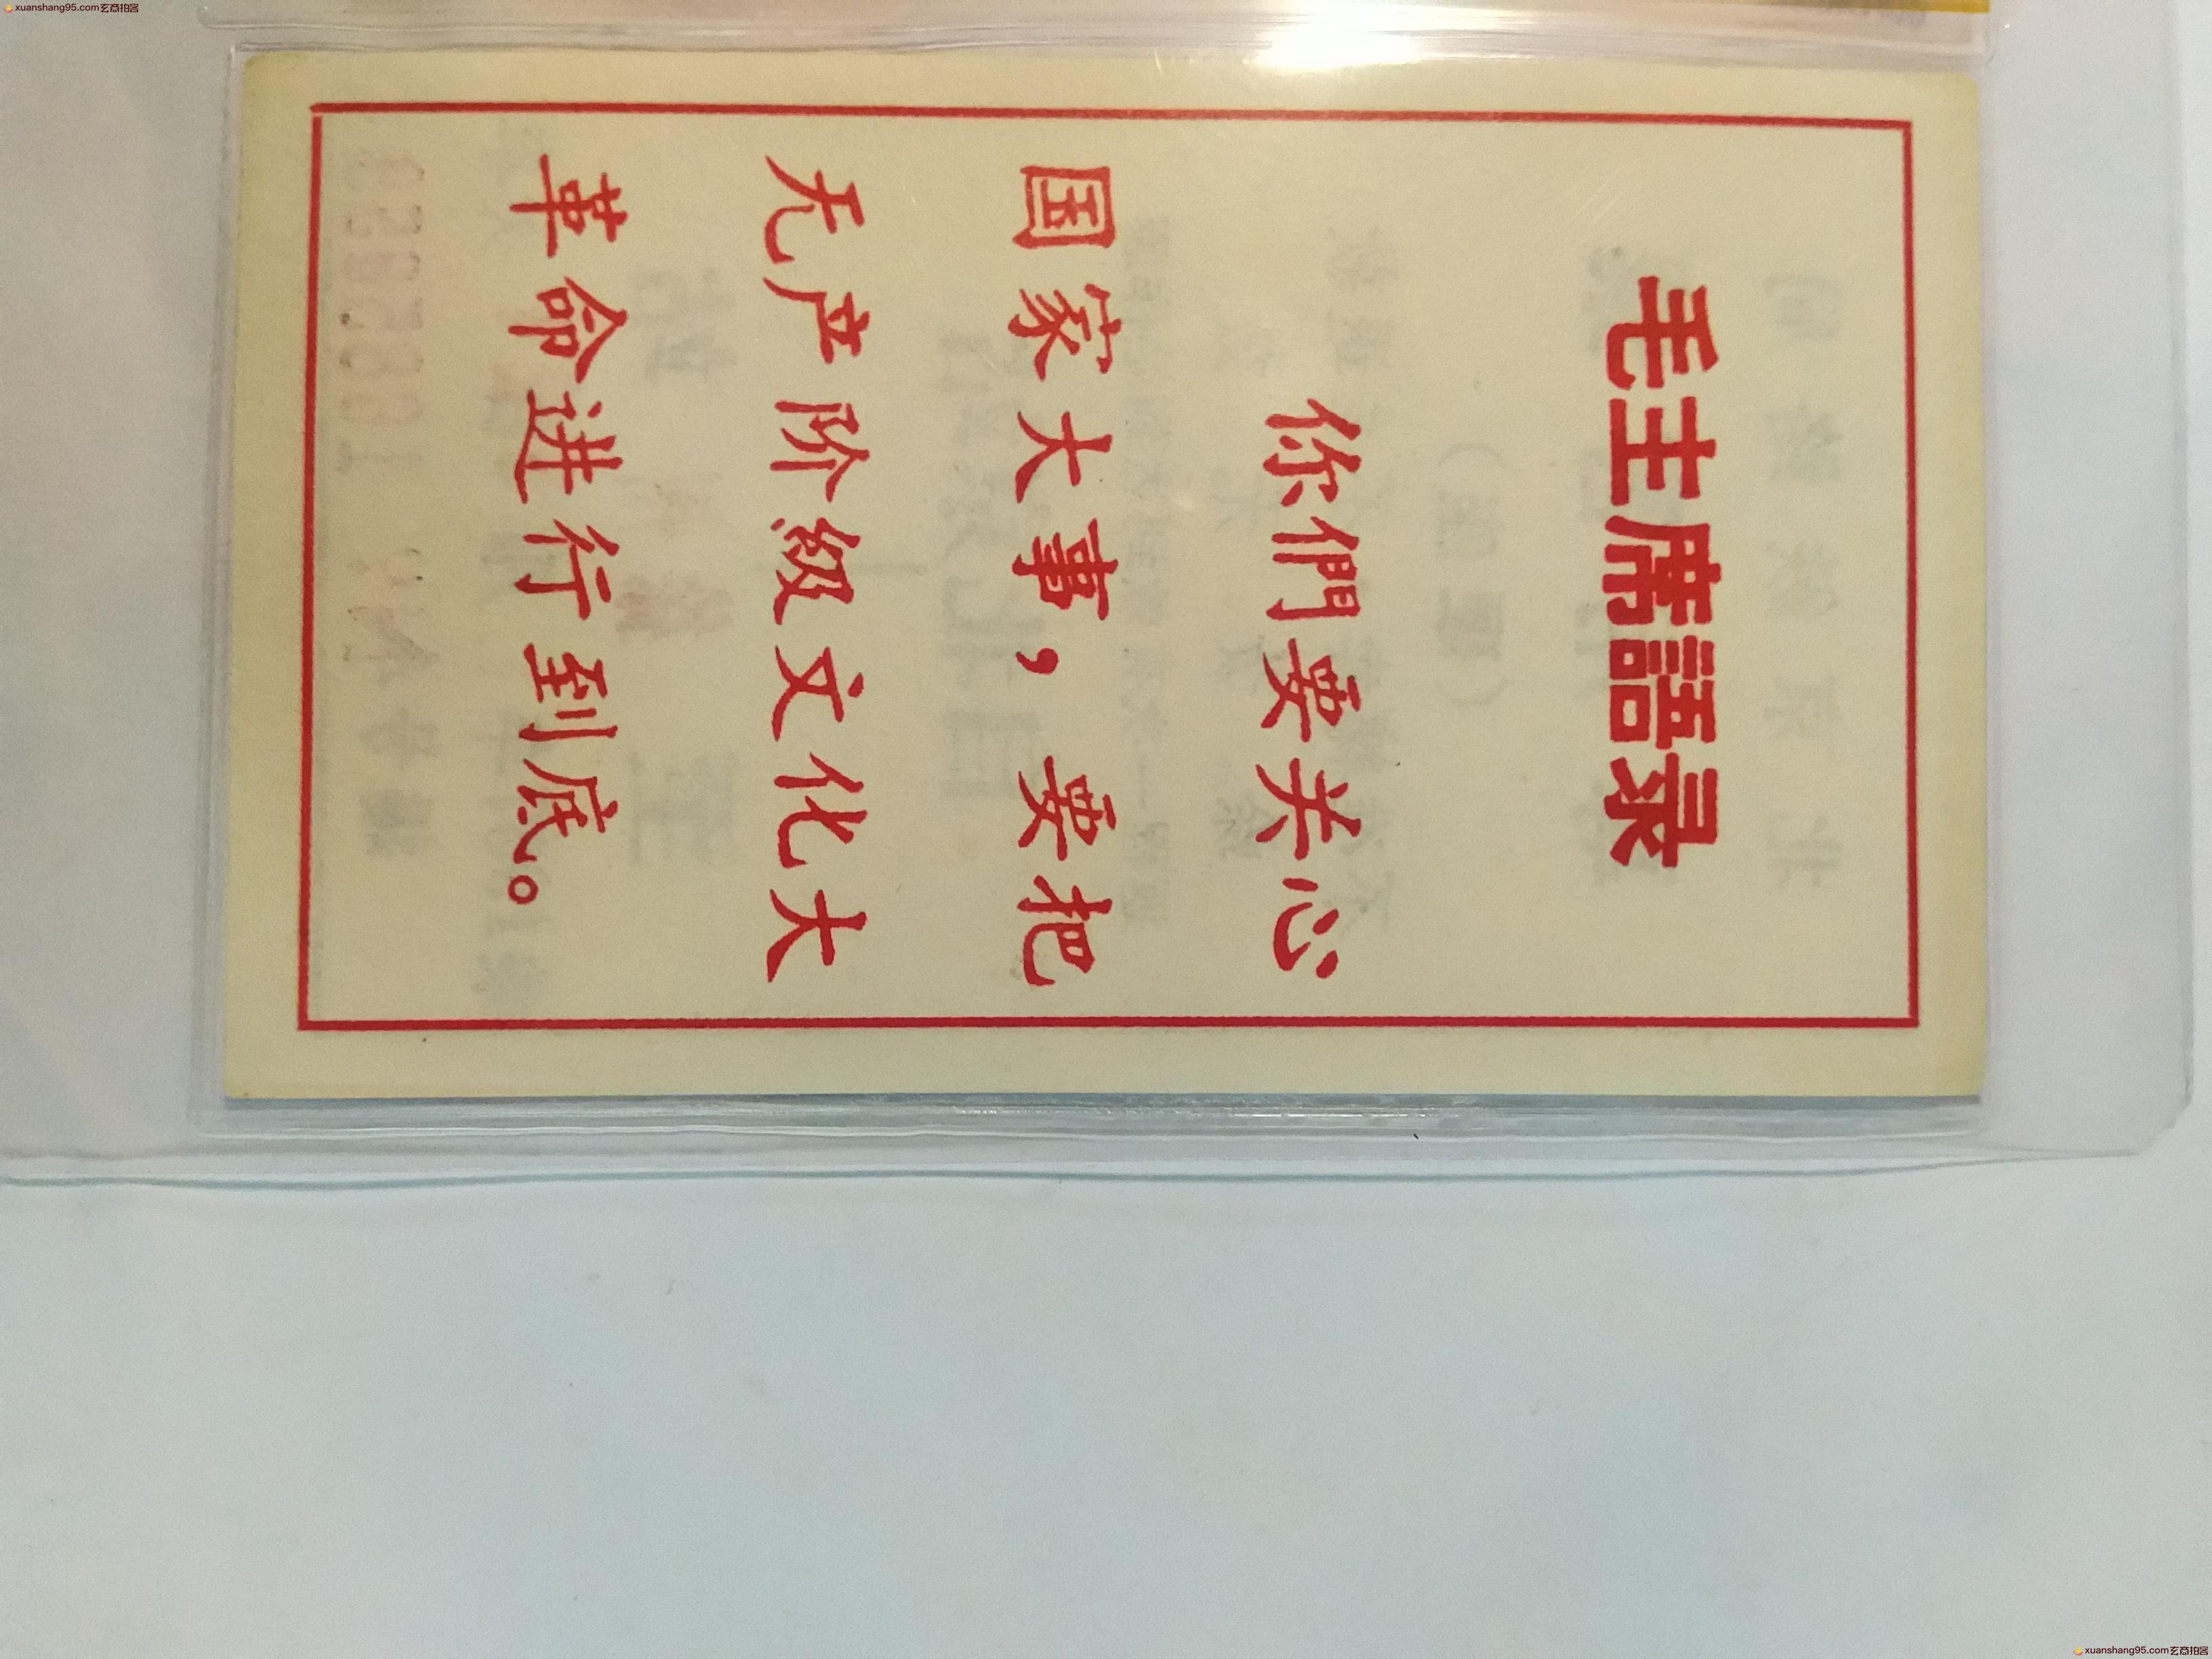 xuanshang95.com玄商拍客
毛主席語录
你們要关心
国家大事，要把
无产阶级文化大
革命进行到底。
xuanshang95.com玄商拍客